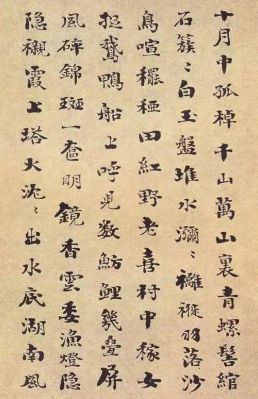 十月中孤棹千山萬山裏青螺髻綰
石簇〻白玉盤堆水瀰〻襳褷羽落沙
鳥喧䆉稏田紅野老喜村中稼女
捉鵞鴨船上呼兒数魴鯉幾疊屏
風碎錦斑一奩明鏡香雲委漁燈隐
隐襯霞上塔火出水底湖南風